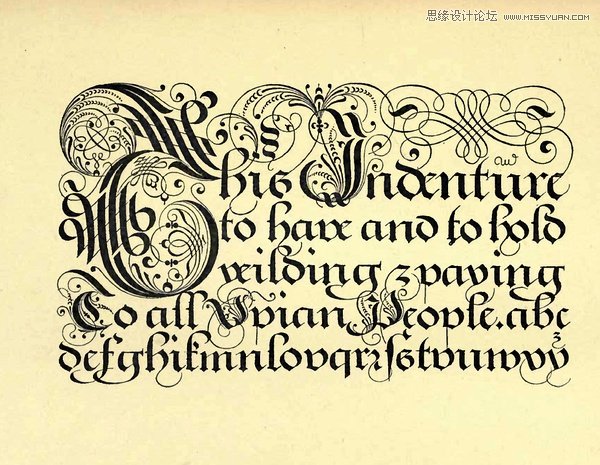 思缘设计论坛 WWW.MISSYUAN.COM
w
This Indenture
to have and to hold
yeilding & paying
To all Xpian People.abc
defghikmnlopqrzſstvuwxyz